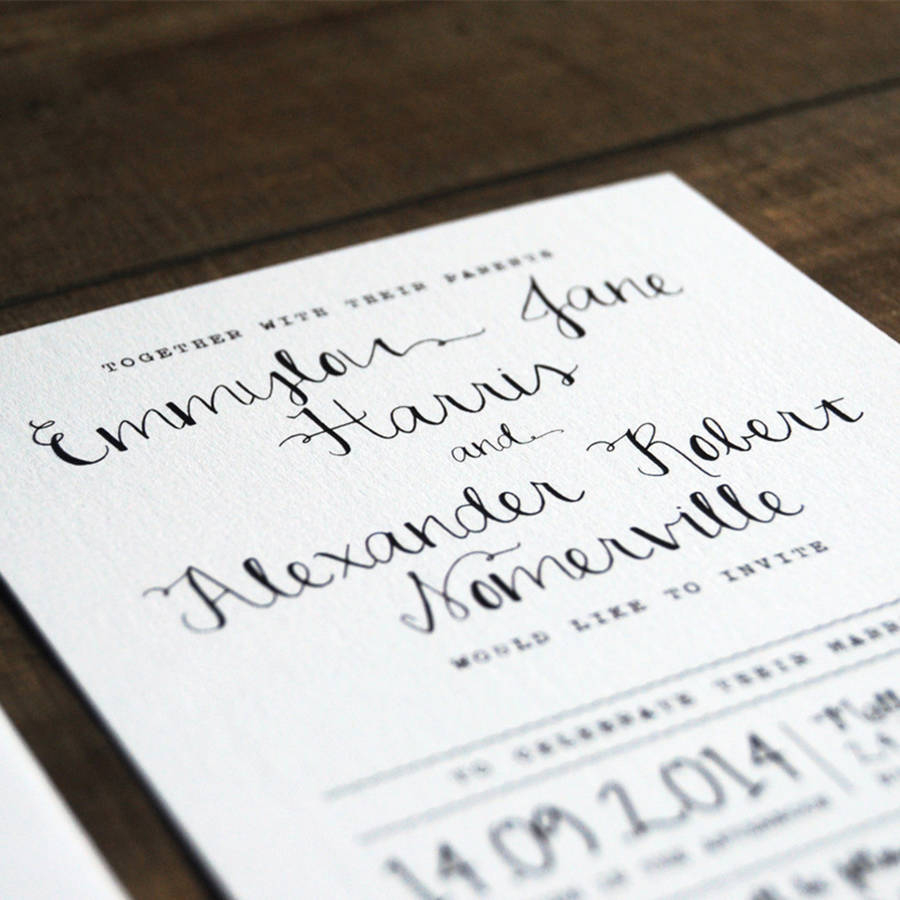 TOGETHER WITH THEIR PARENTS
Emmylou Jane
Harris
and
Alexander Robert
Somerville
WOULD LIKE TO INVITE
TO CELEBRATE THEIR
14.09.2014